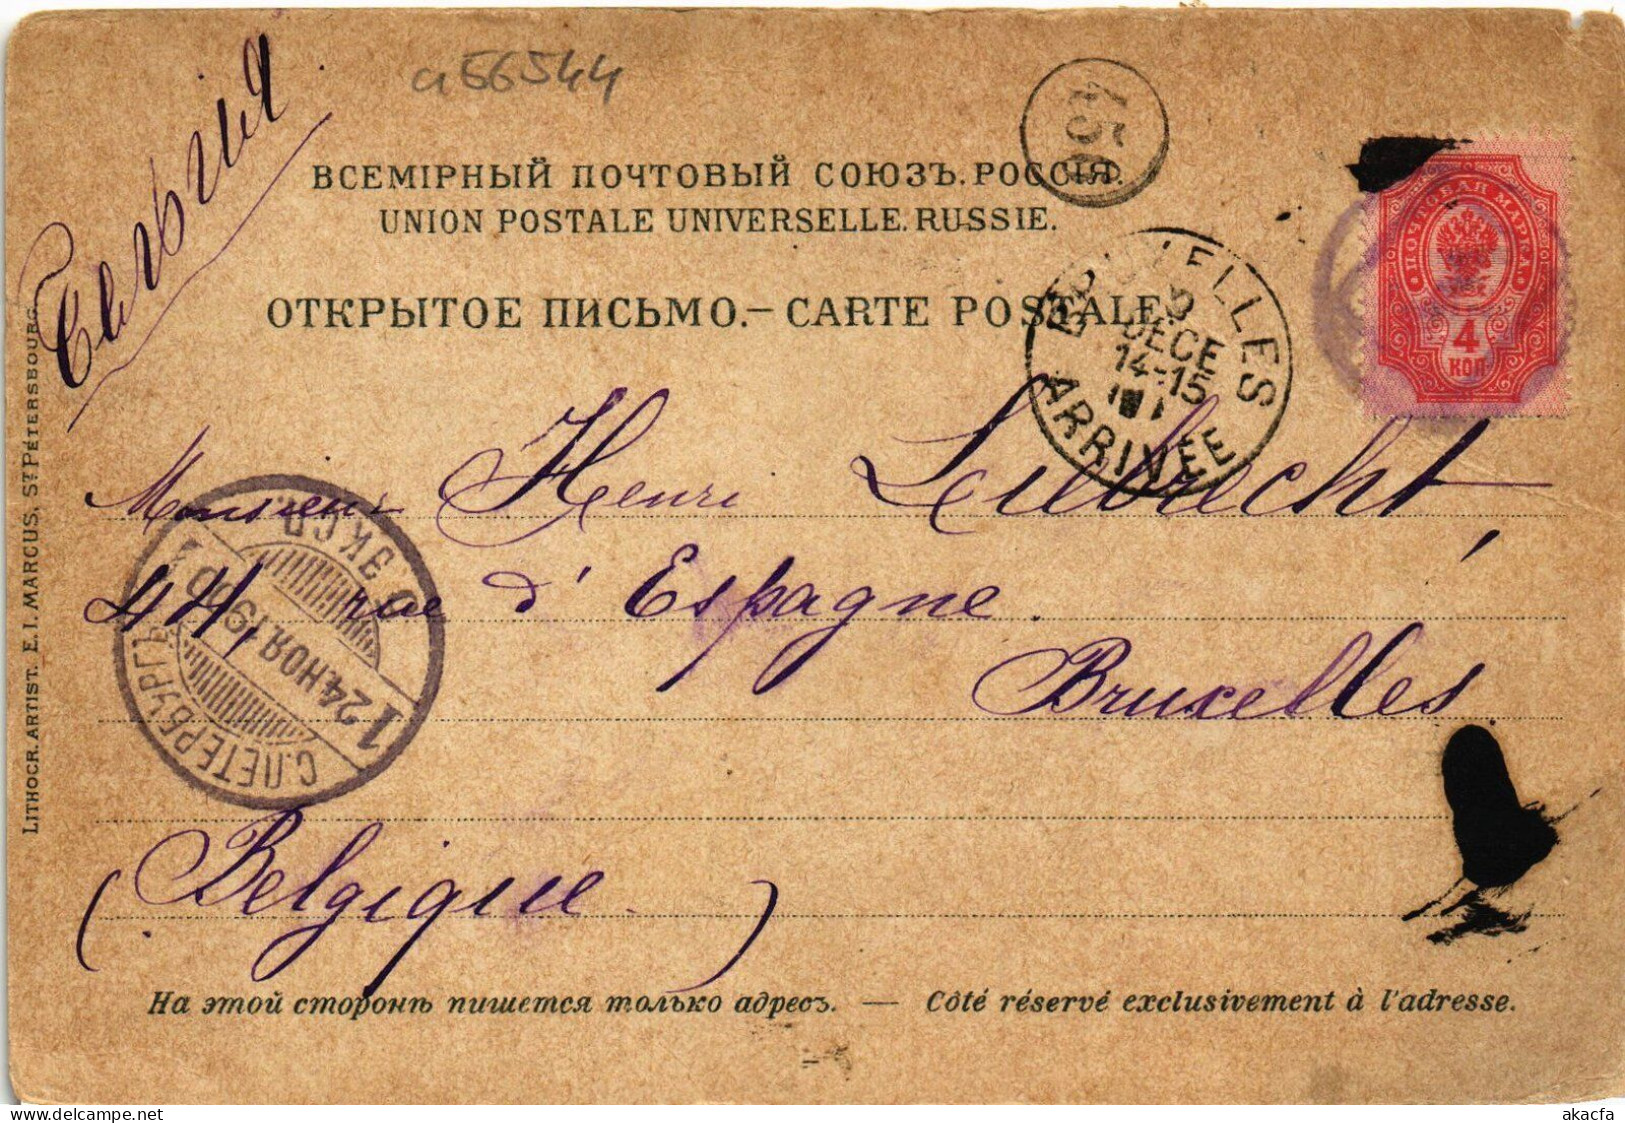 a56544
Бельгія
957
ВСЕМІРНЫЙ ПОЧТОВЫЙ СОЮЗЪ. РОССІЯ.
UNION POSTALE UNIVERSELLE. RUSSIE.
ОТКРЫТОЕ ПИСЬМО.— CARTE POSTALE.
ПОЧТОВАЯ МАРКА.
4
КОП
BRUXELLES
DECE
14-15
ARRIVÉE
Monsieur Henri Liebrecht,
44, rue d'Espagne.
Bruxelles.
(Belgique.)
С.ПЕТЕРБУРГЪ
1 24 НОЯ.19
ЭКСП.
LITHOCR. ARTIST. E. I. MARCUS, ST PÉTERSBOURG.
На этой сторонѣ пишется только адресъ. — Côté réservé exclusivement à l'adresse.
delcampe.net
akacfa